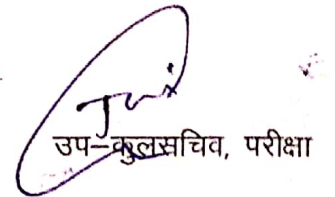 उप–कुलसचिव, परीक्षा